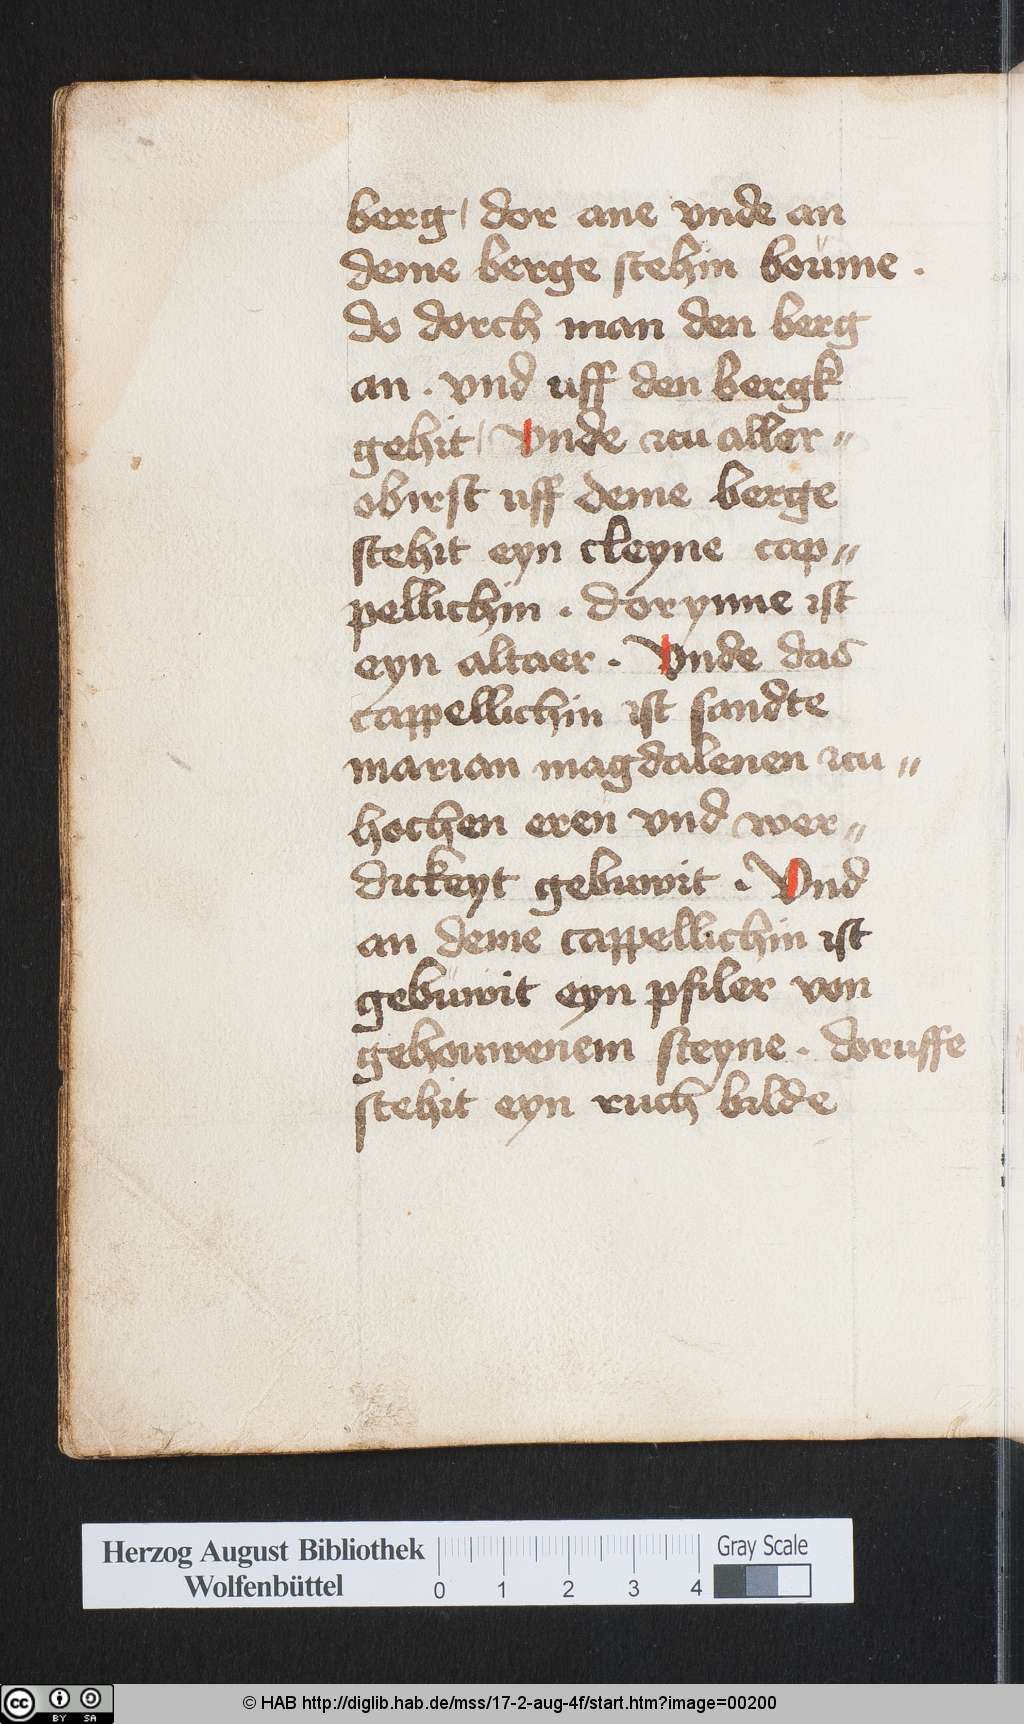 berg / dor ane vnde an
deme berge stehin boüme .
do dorch man den berg
an . vnd uff den bergk
gehit / Vnde zcu aller〃
obirst uff deme berge
stehit eyn cleyne cap〃
pellichin . dorynne ist
eyn altaer . Vnde das
cappellichin ist sandte
marian magdalenen zcu〃
hochen eren vnd wer〃
dickeyt gebuwit . Vnd
an deme cappellichin ist
gebüwit eyn pfiler von
gehouwenem steyne . doruffe
stehit eyn ruch bilde
Herzog August Bibliothek
Wolfenbüttel
0 1 2 3 4
Gray Scale
cc BY SA
© HAB http://diglib.hab.de/mss/17-2-aug-4f/start.htm?image=00200